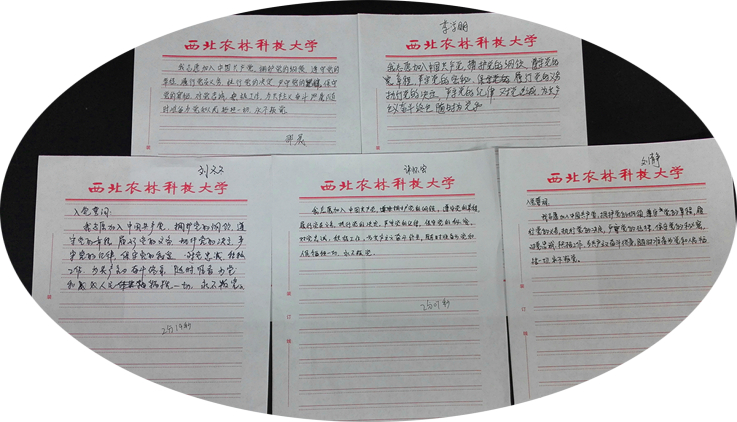 西北农林科技大学
我志愿加入中国共产党、拥护党的纲领、遵守党的
章程、履行党员义务、执行党的决定、严守党的纪律、保守
党的秘密、对党忠诚、积极工作、为共产主义奋斗终身、随
时准备为党和人民牺牲一切、永不叛党。
李学明
西北农林科技大学
我志愿加入中国共产党，拥护党的纲领，遵守党的
章程，履行党员义务
执行党的决定，严守党的纪律
刘文文
西北农林科技大学
入党誓词：
我志愿加入中国共产党，拥护党的纲领，遵
守党的章程，履行党员义务，执行党的决定，严
守党的纪律，保守党的秘密，对党忠诚，积极
工作，为共产主义奋斗终身，随时准备为党
和人民牺牲一切，永不叛党。
2分19秒
西北农林科技大学
我志愿加入中国共产党，拥护党的纲领，遵守党的章程，
履行党员义务，执行党的决定，严守党的纪律，保守党的秘密，
对党忠诚，积极工作，为共产主义奋斗终身，随时准备为党和
人民牺牲一切，永不叛党。
2分01秒
刘静
西北农林科技大学
入党誓词：
我志愿加入中国共产党，拥护党的纲领，遵守党的章程，履
行党员义务，执行党的决定，严守党的纪律，保守党的秘密，
对党忠诚，积极工作，为共产主义奋斗终身，随时准备为党和人民牺
牲一切，永不叛党。